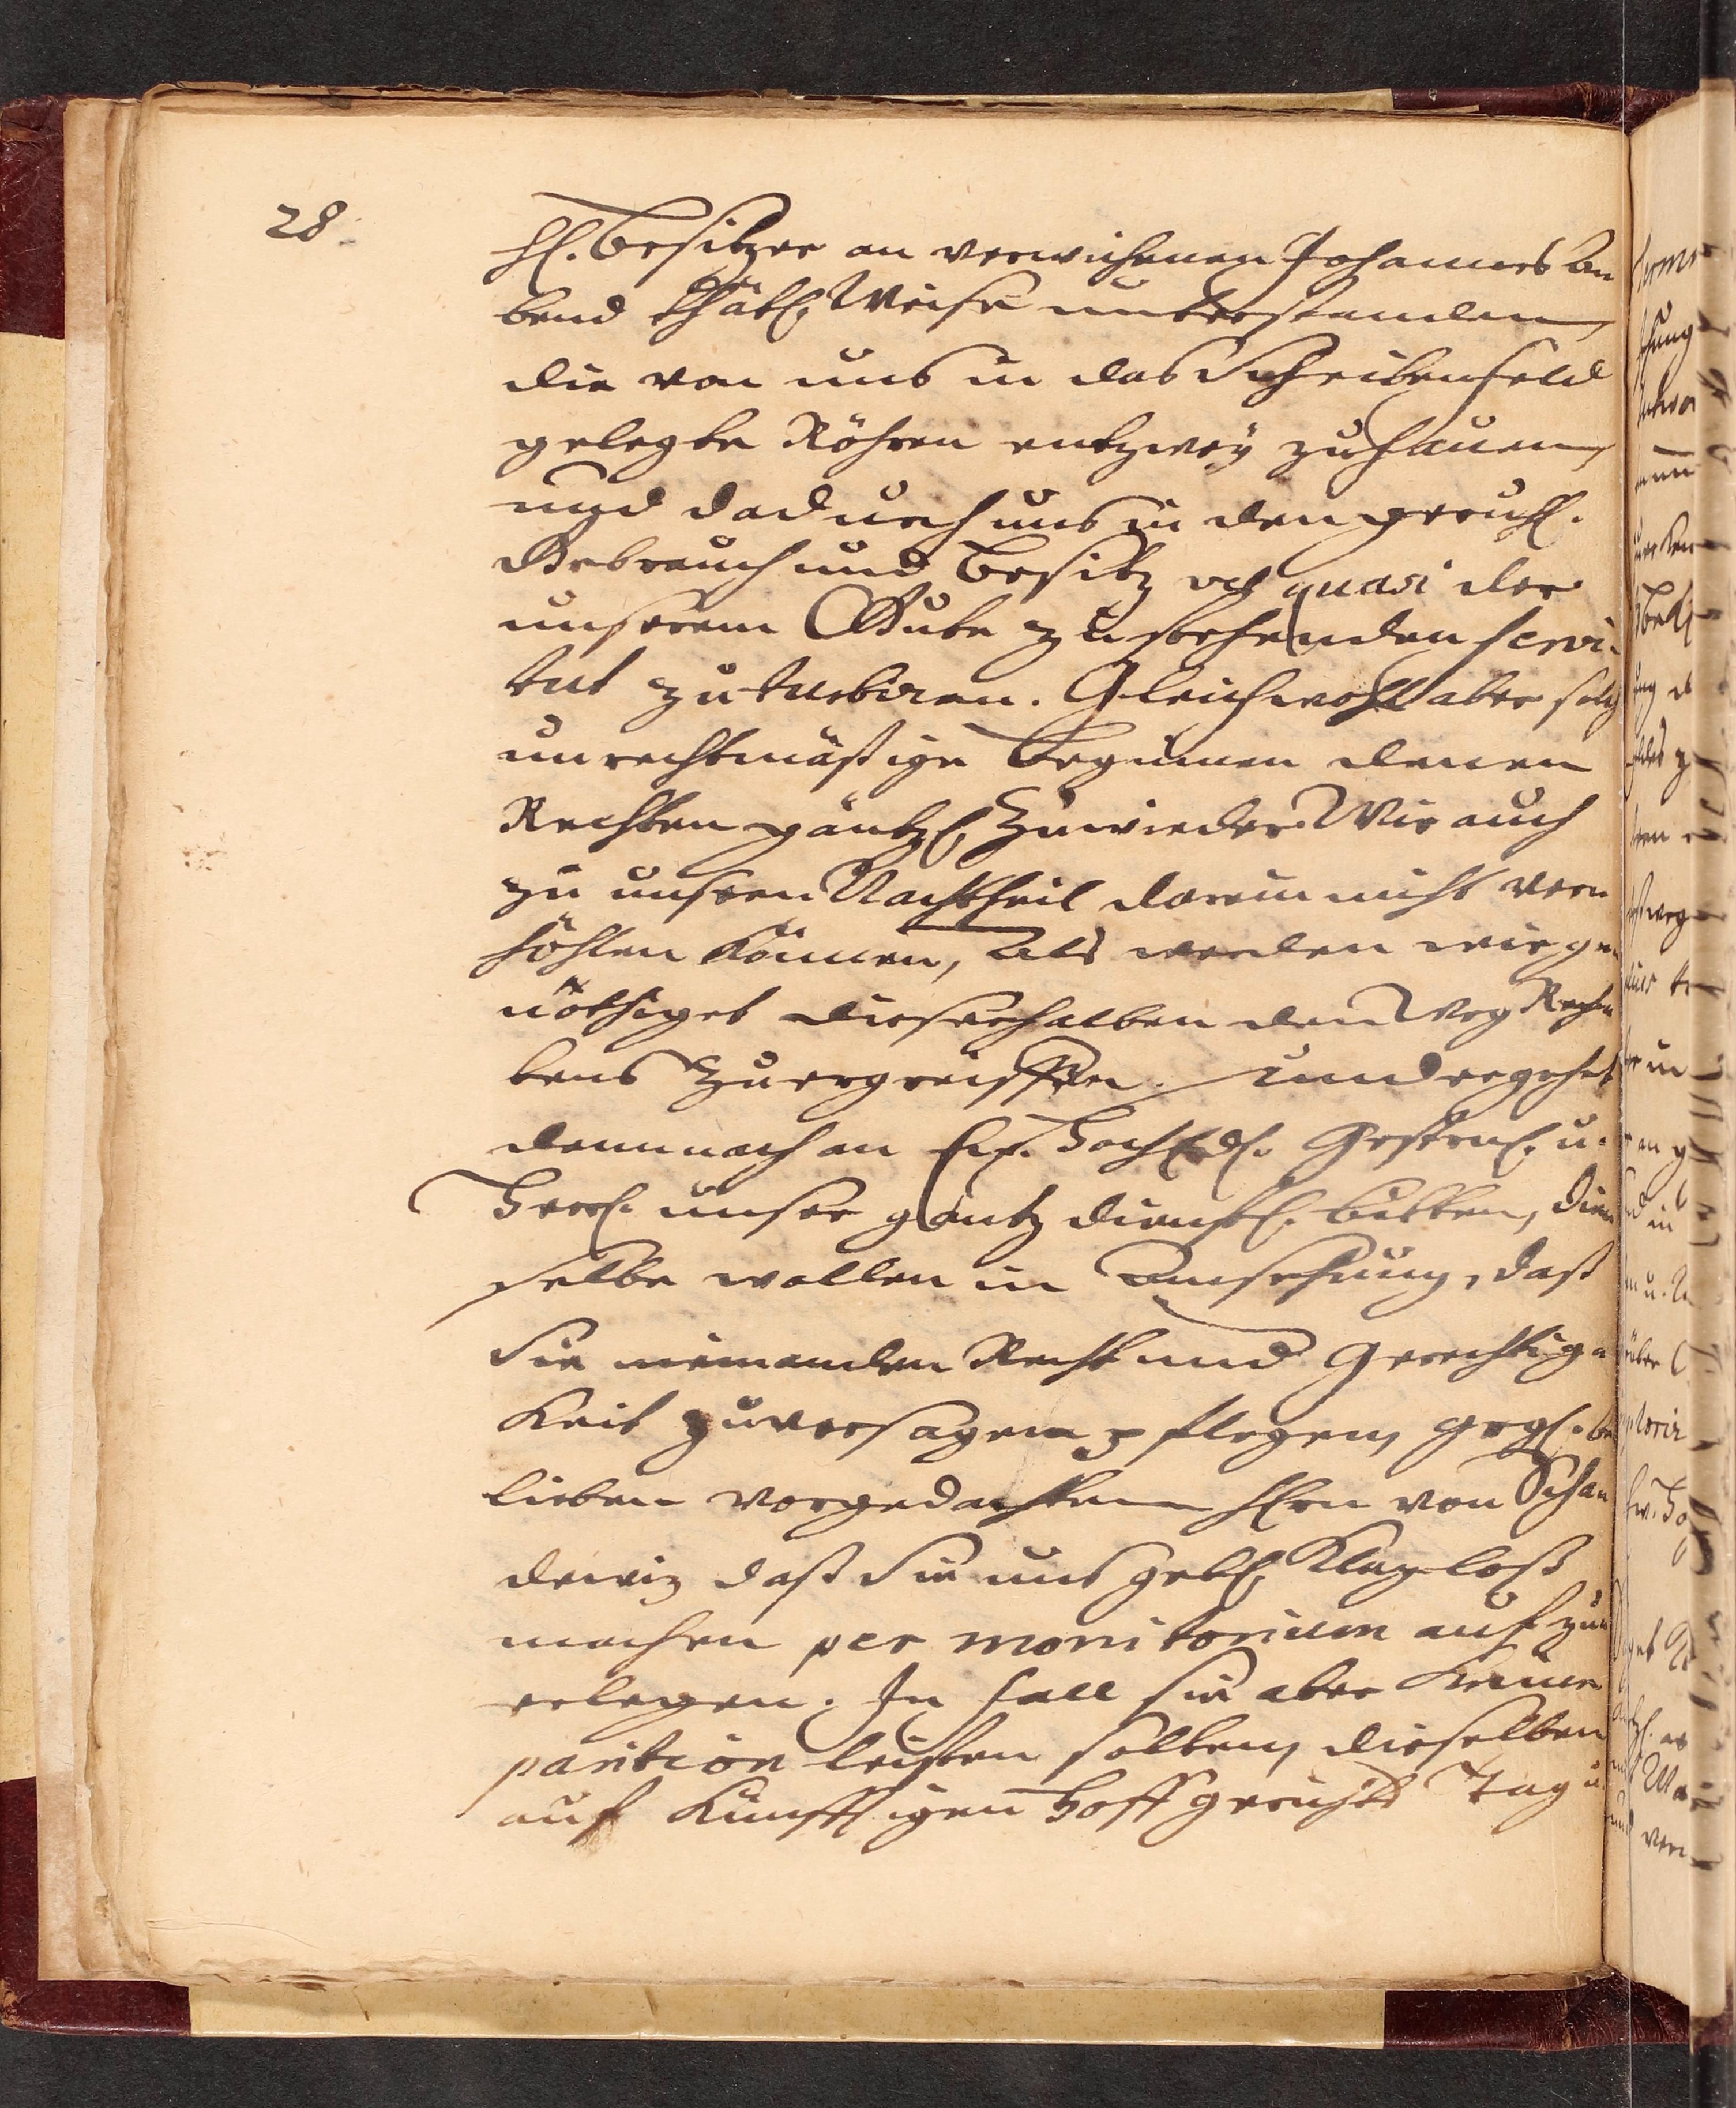 28.
H. Besitzer an verwichenen Johannes A=
bend thätl. Weise unterstanden,
die von uns in das Scheibenfeld
gelegte Röhren entzwey zuhauen,
und dadurch uns in den geruhl.
Gebrauch und Besitz vel quasi der
unserem Gute zustehenden servi-
tut zu turbiren. Gleichwohl aber solch
unrechtmäßige Beginnen denen
Rechten gäntzl. Zuwieder, Wir auch
zu unsren Nachtheil darein nicht ver=
höhlen können, als werden wir ge=
nöthiget dieserhalben den Weg Rech=
tens Zuergreiffen. und ergehet
demnach an Ew. HochEdl. Gestreng. u.
Herrl. unser gantz dienstl. bitten, die=
selbe wollen in Ansehung, daß
Sie niemanden Recht und Gerechtig=
keit zuversagen pflegen, grgl. be=
lieben vorgedachten HErrn von Schan
dewiz daß Sie uns Klagloß
machen per monitorium aufzu=
erlegen. In fall sie aber keine
parition leisten solten, dieselben
auf künfftigen Hoffgerichts Tag u.